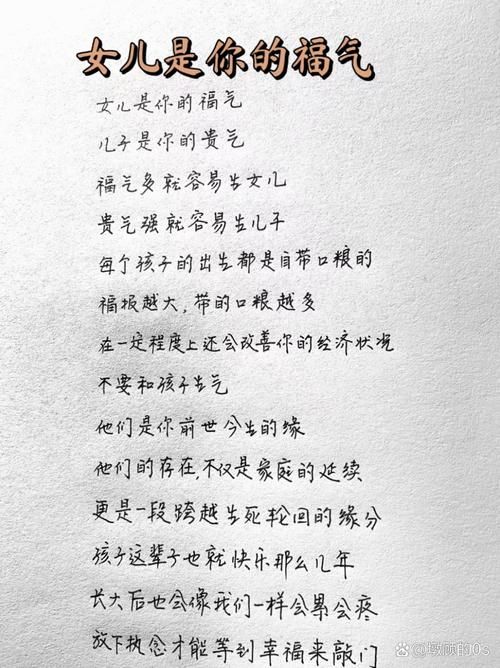 女儿是你的福气
女儿是你的福气
儿子是你的贵气
福气多就容易生女儿
贵气强就容易生儿子
每个孩子的出生都是自带口粮的
福报越大,带的口粮越多
在一定程度上还会改善你的经济状况
不要和孩子生气
他们是你前世今生的缘
他们的存在,不仅是家庭的延续
更是一段跨越生死轮回的缘分
孩子这辈子也就快乐那么几年
长大后也会像我们一样会累会疼
放下执念才能等到幸福来敲门